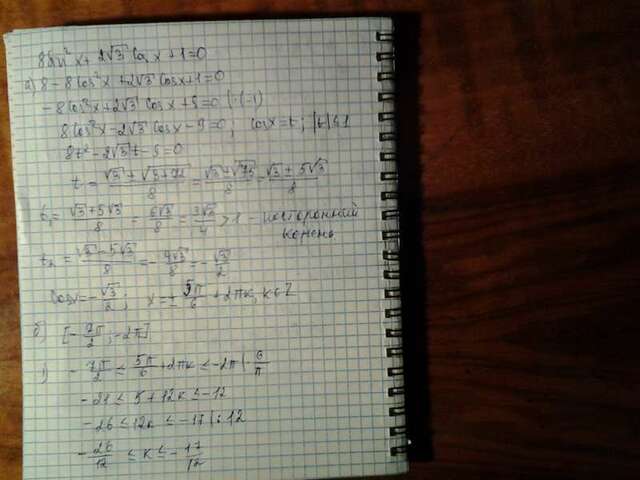 8sin²x + 2√3 cos x + 1 = 0
а) 8 - 8cos²x + 2√3 cosx + 1 = 0
- 8cos²x + 2√3 cosx + 9 = 0 | · (-1)
8cos²x - 2√3 cosx - 9 = 0 ; cosx = t, |t| ≤ 1
8t² - 2√3 t - 9 = 0
t = (√3 ± √(3+72))/8 = (√3 ± √75)/8 = (√3 ± 5√3)/8
t₁ = (√3 + 5√3)/8 = 6√3/8 = 3√3/4 > 1 - посторонний
корень
t₂ = (√3 - 5√3)/8 = - 4√3/8 = - √3/2
cosx = - √3/2 ; x = ± 5π/6 + 2πk, k ∈ Z
б) [- 7π/2 ; -2π]
1) - 7π/2 ≤ 5π/6 + 2πk ≤ -2π | · 6/π
- 21 ≤ 5 + 12k ≤ -12
- 26 ≤ 12k ≤ -17 | : 12
- 26/12 ≤ k ≤ - 17/12